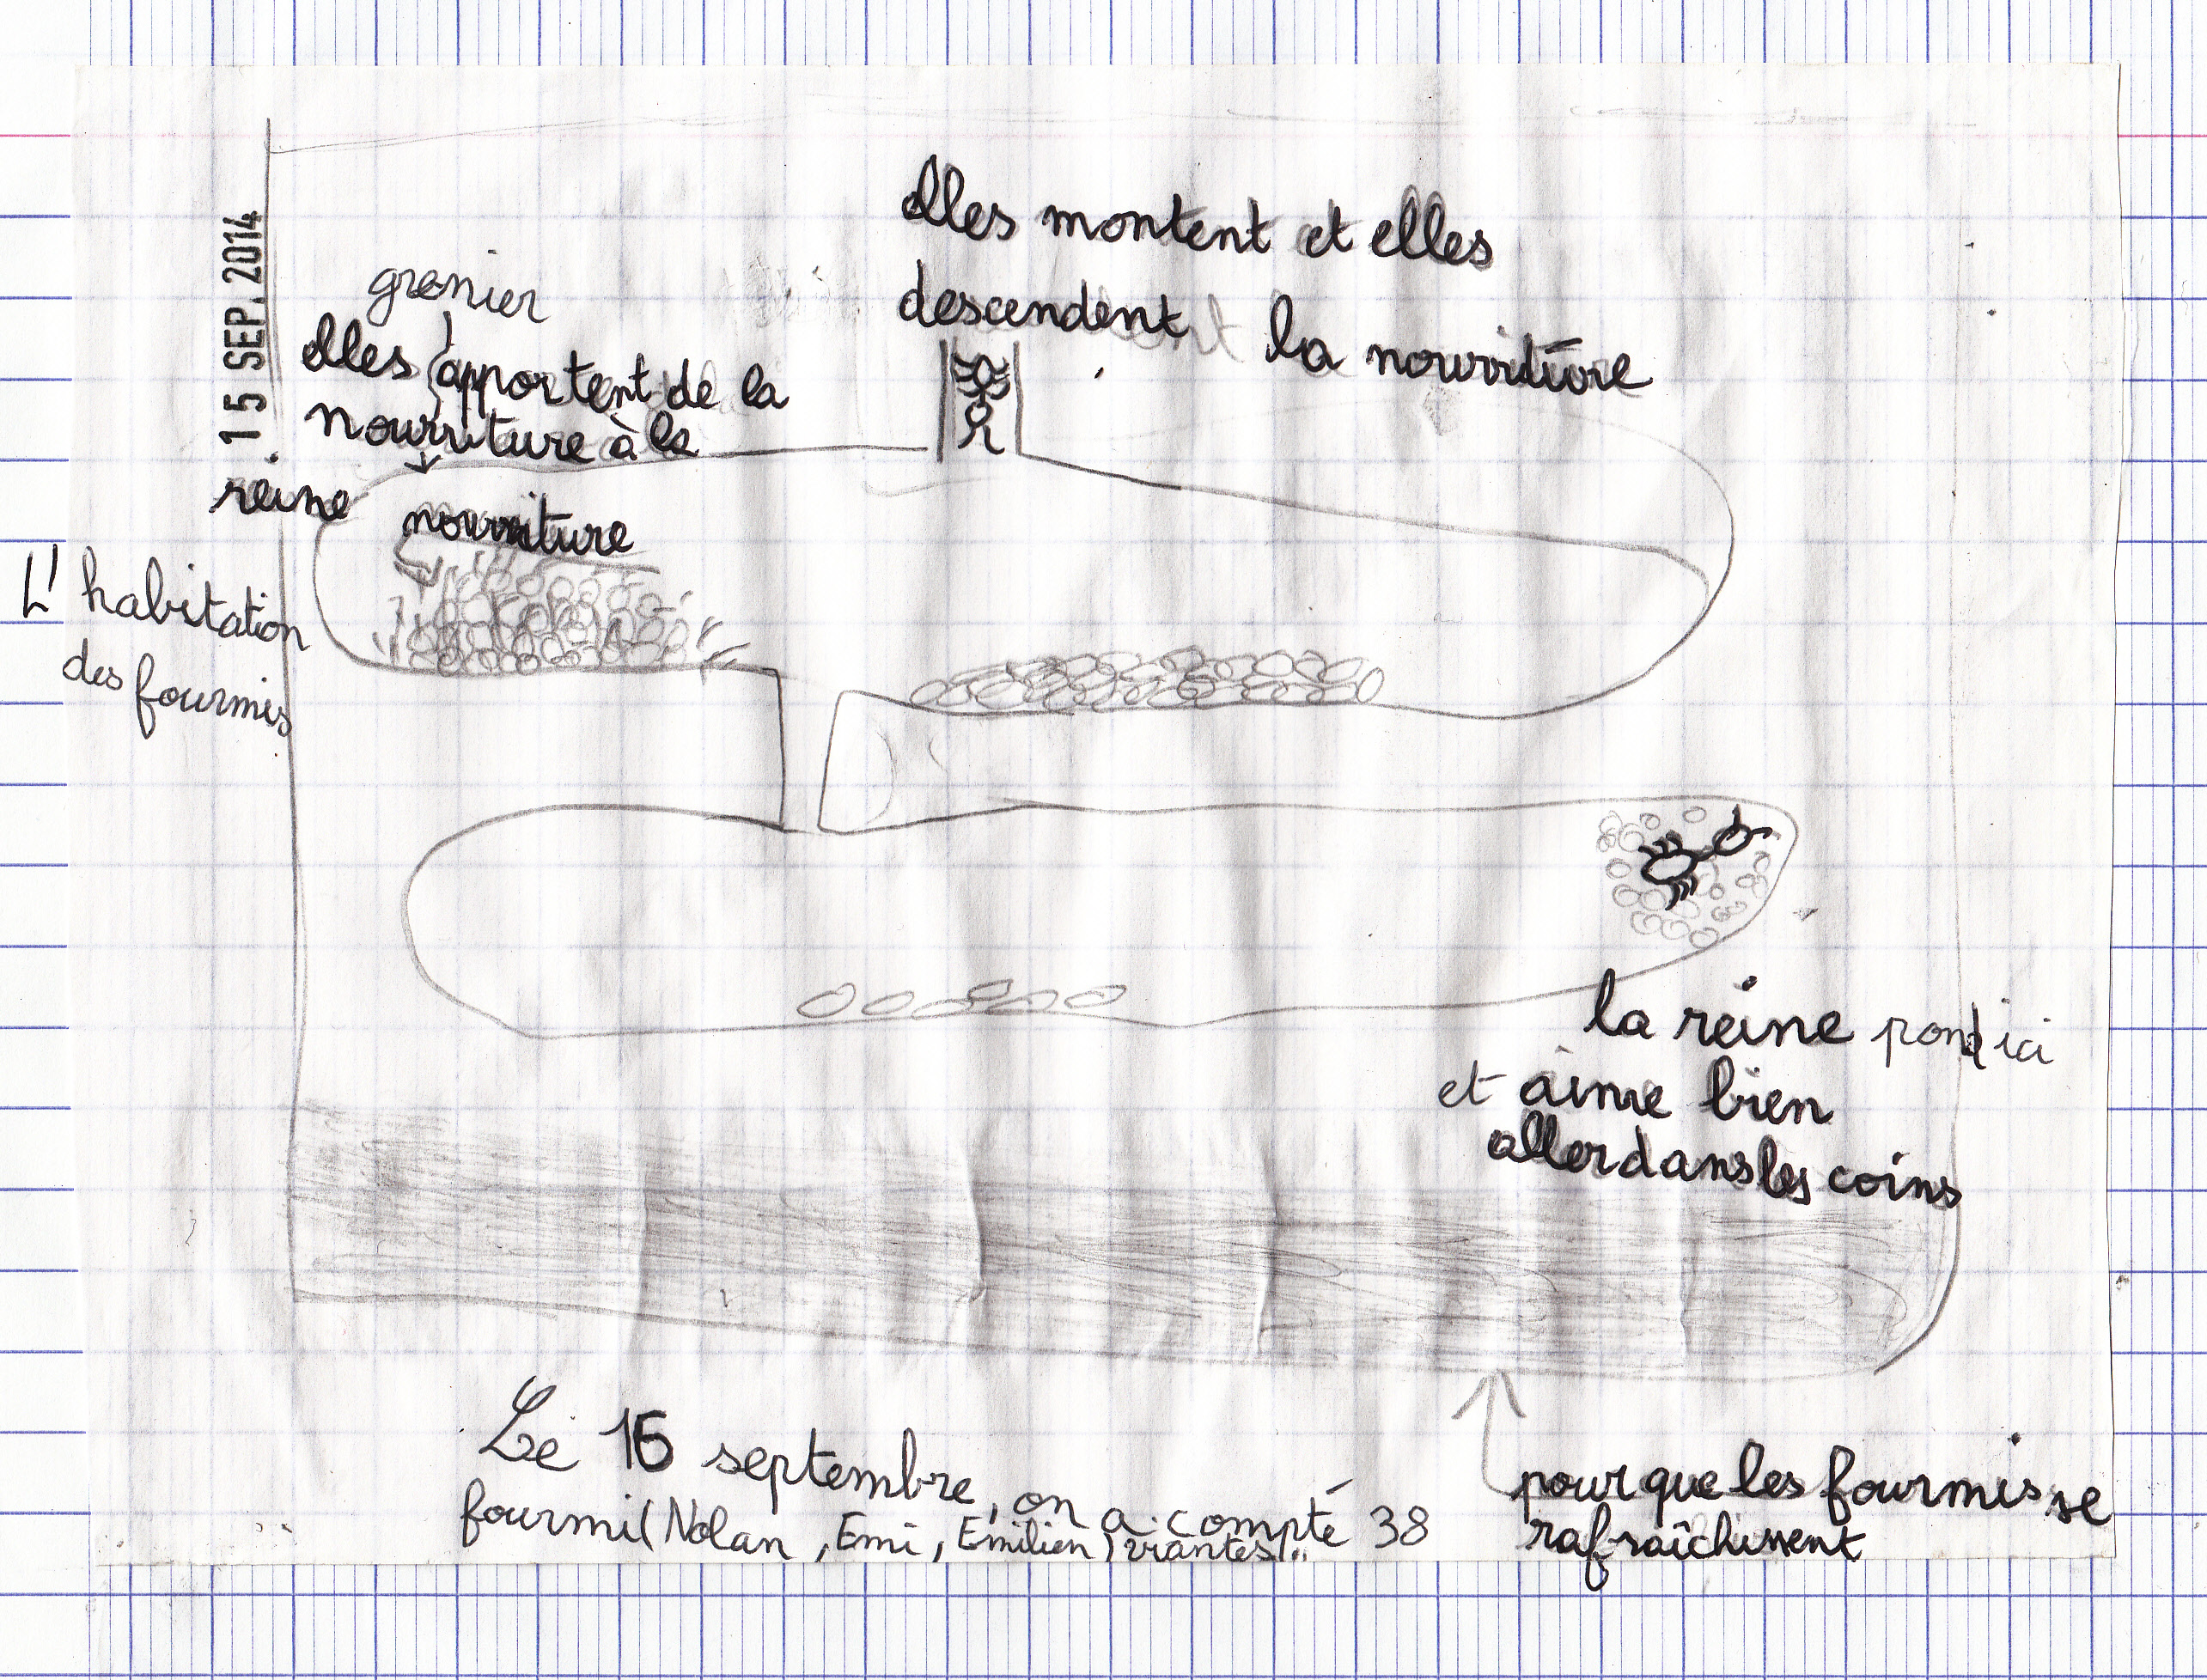 15 SEP. 2014
elles montent et elles
descendent la nourriture
grenier
elles apportent de la
nourriture à la
reine
nourriture
L'habitation
des fourmis
la reine pond ici
et aime bien
aller dans les coins
Le 15 septembre, on a compté 38
fourmi (Nolan, Emi, Emilien) vivantes
pour que les fourmis se
rafraîchissent